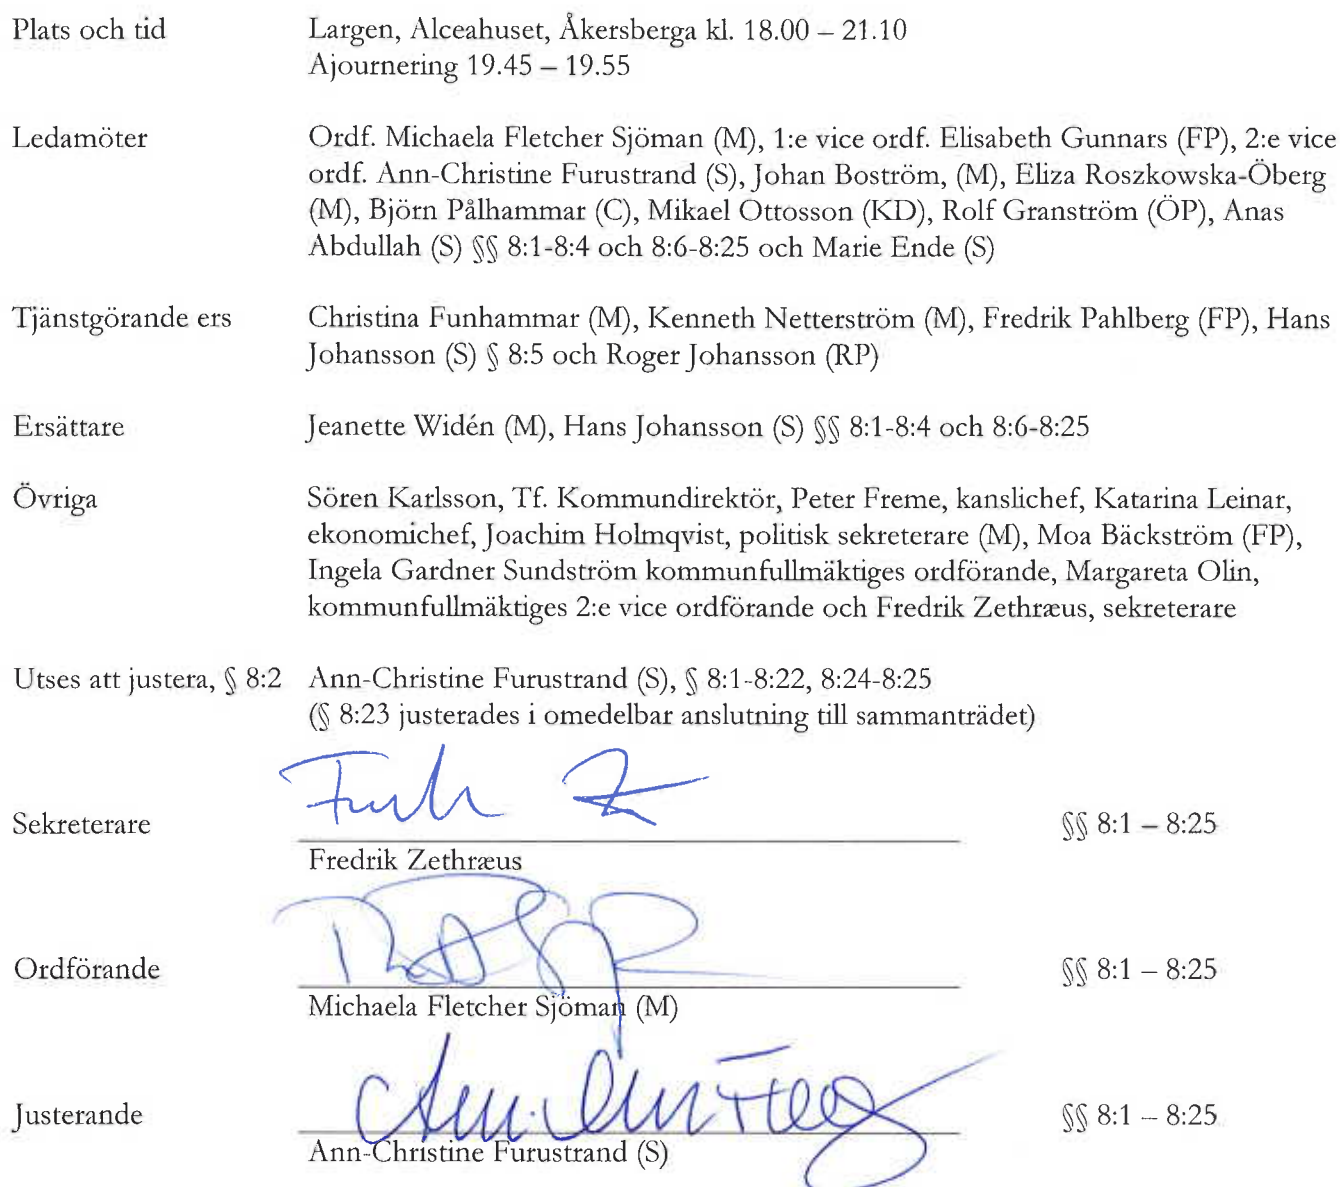 Plats och tid Largen, Alceahuset, Åkersberga kl. 18.00 – 21.10
Ajournering 19.45 – 19.55
Ledamöter Ordf. Michaela Fletcher Sjöman (M), 1:e vice ordf. Elisabeth Gunnars (FP), 2:e vice
ordf. Ann-Christine Furustrand (S), Johan Boström, (M), Eliza Roszkowska-Öberg
(M), Björn Pålhammar (C), Mikael Ottosson (KD), Rolf Granström (ÖP), Anas
Abdullah (S) §§ 8:1-8:4 och 8:6-8:25 och Marie Ende (S)
Tjänstgörande ers Christina Funhammar (M), Kenneth Netterström (M), Fredrik Pahlberg (FP), Hans
Johansson (S) § 8:5 och Roger Johansson (RP)
Ersättare Jeanette Widén (M), Hans Johansson (S) §§ 8:1-8:4 och 8:6-8:25
Övriga Sören Karlsson, Tf. Kommundirektör, Peter Freme, kanslichef, Katarina Leinar,
ekonomichef, Joachim Holmqvist, politisk sekreterare (M), Moa Bäckström (FP),
Ingela Gardner Sundström kommunfullmäktiges ordförande, Margareta Olin,
kommunfullmäktiges 2:e vice ordförande och Fredrik Zethræus, sekreterare
Utses att justera, § 8:2 Ann-Christine Furustrand (S), § 8:1-8:22, 8:24-8:25
(§ 8:23 justerades i omedelbar anslutning till sammanträdet)
Sekreterare §§ 8:1 – 8:25
Fredrik Zethræus
Ordförande §§ 8:1 – 8:25
Michaela Fletcher Sjöman (M)
Justerande §§ 8:1 – 8:25
Ann-Christine Furustrand (S)